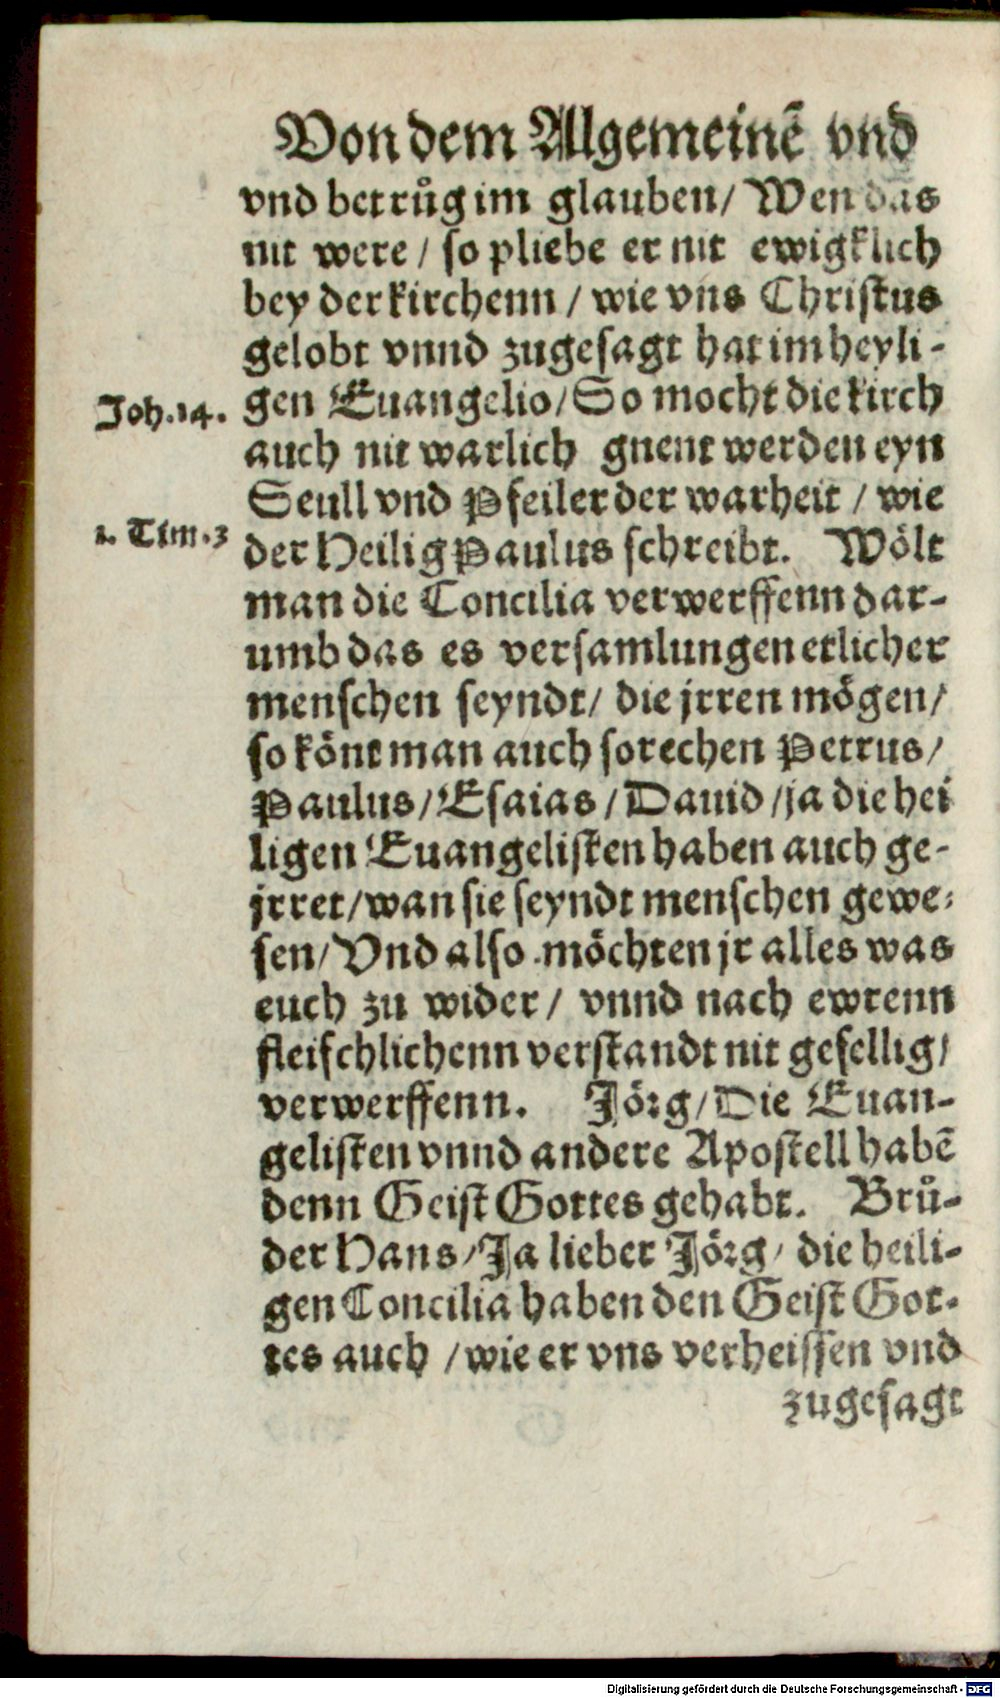 Von dem Allgemeinē vnd
vnd betrůg im glauben/ Wen das
nit were / so pliebe er nit ewigklich
bey der kirchenn / wie vns Christus
gelobt vnnd zugesagt hat im heyli-
Joh.14. gen Euangelio/ So mocht die kirch
auch nit warlich gnent werden eyn
Seull vnd Pfeiler der warheit / wie
1. Tim.3 der Heilig Paulus schreibt. Wölt
man die Concilia verwerffenn dar-
umb das es versamlungen etlicher
menschen seyndt/ die jrren mögen/
so könt man auch so rechen Petrus/
Paulus/ Esaias / Dauid /ja die hei
ligen Euangelisten haben auch ge-
jrret/wan sie seyndt menschen gewe-
sen/ Vnd also möchten jr alles was
euch zu wider / vnnd nach ewrenn
fleischlichenn verstandt nit gefellig/
verwerffenn. Jörg/ Die Euan-
gelisten vnnd andere Apostell habē
denn Geist Gottes gehabt. Brů-
der Hans/ Ja lieber Jörg/ die heili-
gen Concilia haben den Geist Got-
tes auch / wie er vns verheissen vnd
zugesagt
Digitalisierung gefördert durch die Deutsche Forschungsgemeinschaft - DFG